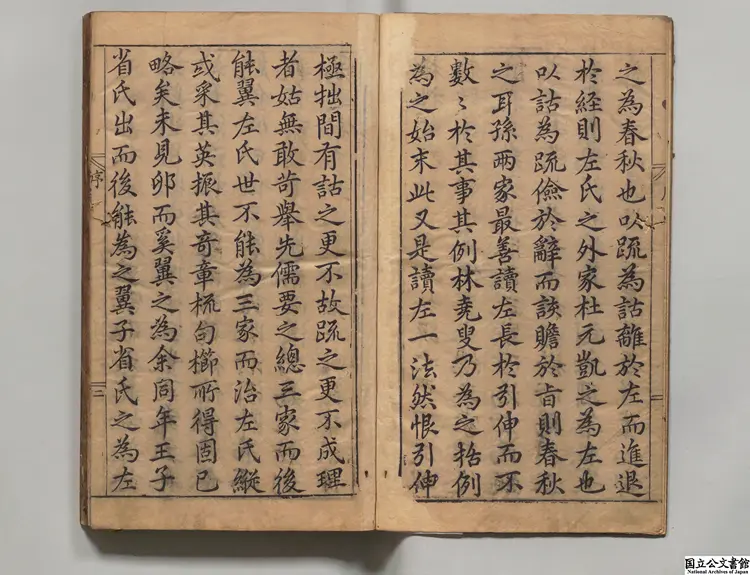 之為春秋也以䟽為詁離於左而進退
於経則左氏之外家杜元凱之為左也
以詁為䟽儉於辭而該贍於旨則春秋
之耳孫两家最善讀左長於引伸而不
數〻於其事其例林堯叟乃為之括例
為之始末此又是讀左一法然恨引伸
極拙間有詁之更不故䟽之更不成理
者姑無敢苛舉先儒要之總三家而後
能翼左氏世不能為三家而治左氏縱
或采其英振其奇章梳句櫛所得固已
略矣未見卵而奚翼之為余同年王子
省氏出而後能為之翼子省氏之為左
序
二
国立公文書館
National Archives of Japan